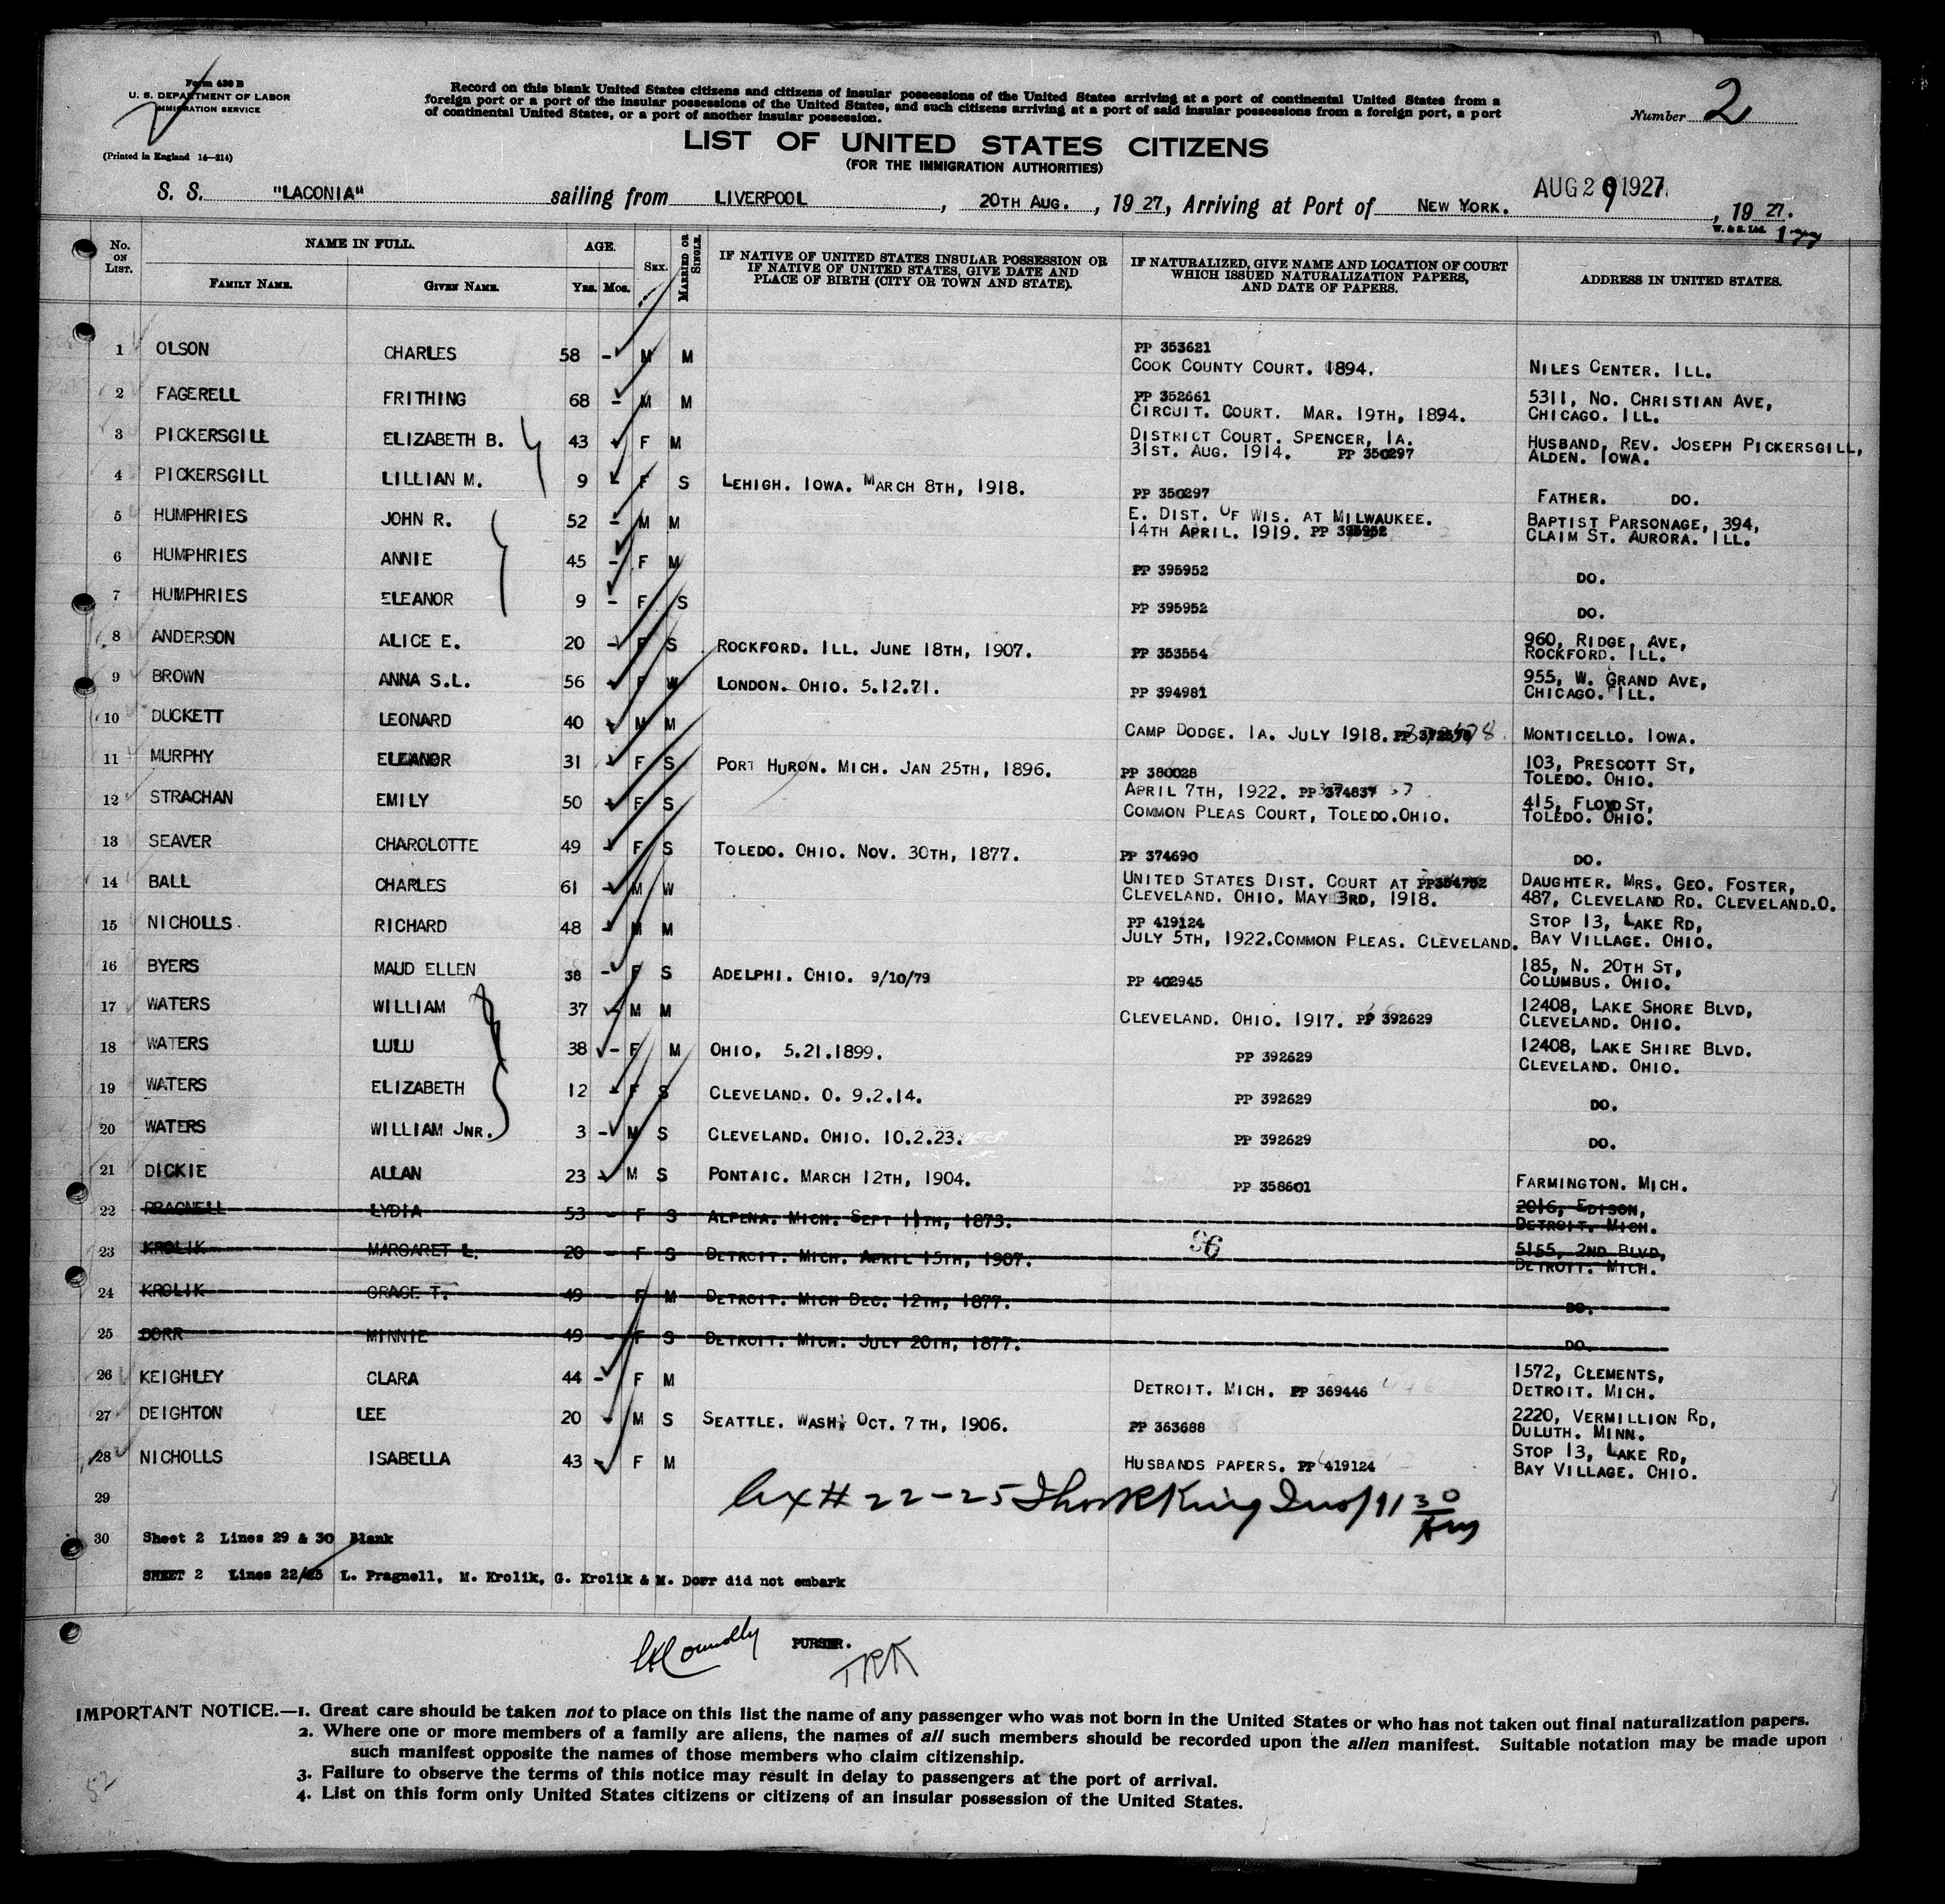 Form 630 B
U. S. DEPARTMENT OF LABOR
IMMIGRATION SERVICE
(Printed in England 14—214)
Record on this blank United States citizens and citizens of insular possessions of the United States arriving at a port of continental United States from a
foreign port or a port of the insular possessions of the United States, and such citizens arriving at a port of said insular possessions from a foreign port, a port
of continental United States, or a port of another insular possession.
Number 2
LIST OF UNITED STATES CITIZENS
(FOR THE IMMIGRATION AUTHORITIES)
S. S. "LACONIA" sailing from LIVERPOOL, 20TH AUG., 1927, Arriving at Port of NEW YORK. AUG 29 1927, 1927.
W. & S. Ltd. 177
No. ON LIST. NAME IN FULL. FAMILY NAME. GIVEN NAME. AGE. Yrs. Mos. SEX. MARRIED OR SINGLE. IF NATIVE OF UNITED STATES INSULAR POSSESSION OR IF NATIVE OF UNITED STATES, GIVE DATE AND PLACE OF BIRTH (CITY OR TOWN AND STATE). IF NATURALIZED, GIVE NAME AND LOCATION OF COURT WHICH ISSUED NATURALIZATION PAPERS, AND DATE OF PAPERS. ADDRESS IN UNITED STATES.
1 OLSON CHARLES 58 - M M PP 353621 COOK COUNTY COURT. 1894. NILES CENTER. ILL.
2 FAGERELL FRITHING 68 - M M PP 352661 CIRCUIT. COURT. MAR. 19TH, 1894. 5311, NO. CHRISTIAN AVE, CHICAGO. ILL.
3 PICKERSGILL ELIZABETH B. 43 - F M DISTRICT COURT. SPENCER, IA. 31ST. AUG. 1914. PP 350297 HUSBAND, REV. JOSEPH PICKERSGILL, ALDEN. IOWA.
4 PICKERSGILL LILLIAN M. 9 - F S LEHIGH. IOWA. MARCH 8TH, 1918. PP 350297 FATHER. DO.
5 HUMPHRIES JOHN R. 52 - M M E. DIST. OF WIS. AT MILWAUKEE. 14TH APRIL. 1919. PP 395952 BAPTIST PARSONAGE, 394, CLAIM ST. AURORA. ILL.
6 HUMPHRIES ANNIE 45 - F M PP 395952 DO.
7 HUMPHRIES ELEANOR 9 - F S PP 395952 DO.
8 ANDERSON ALICE E. 20 - F S ROCKFORD. ILL. JUNE 18TH, 1907. PP 353554 960, RIDGE, AVE, ROCKFORD. ILL.
9 BROWN ANNA S.L. 56 - F W LONDON. OHIO. 5.12.71. PP 394981 955, W. GRAND AVE, CHICAGO. ILL.
10 DUCKETT LEONARD 40 - M M CAMP DODGE. IA. JULY 1918. MONTICELLO. IOWA.
11 MURPHY ELEANOR 31 - F S PORT HURON. MICH. JAN 25TH, 1896. PP 380028 103, PRESCOTT ST, TOLEDO. OHIO.
12 STRACHAN EMILY 50 - F S APRIL 7TH, 1922. PP 374837 COMMON PLEAS COURT, TOLEDO.OHIO. 415, FLOYD ST, TOLEDO. OHIO.
13 SEAVER CHAROLOTTE 49 - F S TOLEDO. OHIO. NOV. 30TH, 1877. PP 374690 DO.
14 BALL CHARLES 61 - M W UNITED STATES DIST. COURT AT PP354752 CLEVELAND. OHIO. MAY 3RD, 1918. DAUGHTER. MRS. GEO. FOSTER, 487, CLEVELAND RD. CLEVELAND.O.
15 NICHOLLS. RICHARD 48 - M M PP 419124 JULY 5TH, 1922.COMMON PLEAS. CLEVELAND. STOP 13, LAKE RD, BAY VILLAGE. OHIO.
16 BYERS MAUD ELLEN 38 - F S ADELPHI. OHIO. 9/10/79 PP 402945 185, N. 20TH ST, COLUMBUS. OHIO.
17 WATERS WILLIAM 37 - M M CLEVELAND. OHIO. 1917. PP 392629 12408, LAKE SHORE BLVD, CLEVELAND. OHIO.
18 WATERS LULU 38 - F M OHIO, 5.21.1899. PP 392629 12408, LAKE SHIRE BLVD. CLEVELAND. OHIO.
19 WATERS ELIZABETH 12 - F S CLEVELAND. O. 9.2.14. PP 392629 DO.
20 WATERS WILLIAM JNR. 3 - M S CLEVELAND. OHIO. 10.2.23. PP 392629 DO.
21 DICKIE ALLAN 23 - M S PONTAIC. MARCH 12TH, 1904. PP 358601 FARMINGTON. MICH.
22 PRAGNELL LYDIA 53 - F S ALPENA. MICH. SEPT 11TH, 1873. 2016, EDISON, DETROIT. MICH.
23 KROLIK MARGARET L. 20 - F S DETROIT. MICH. APRIL 15TH, 1907. 96 5155, 2ND BLVD, DETROIT. MICH.
24 KROLIK GRACE T. 49 - F M DETROIT. MICH DEC. 12TH, 1877. DO.
25 DORR MINNIE 49 - F S DETROIT. MICH. JULY 20TH, 1877. DO.
26 KEIGHLEY CLARA 44 - F M DETROIT. MICH. PP 369446 1572, CLEMENTS, DETROIT. MICH.
27 DEIGHTON LEE 20 - M S SEATTLE. WASH: OCT. 7TH, 1906. PP 363688 2220, VERMILLION RD, DULUTH. MINN.
28 NICHOLLS ISABELLA 43 - F M HUSBANDS PAPERS. PP 419124 STOP 13, LAKE RD, BAY VILLAGE. OHIO.
29
# 22-25 King 11 30
30 Sheet 2 Lines 29 & 30 Blank
SHEET 2 Lines 22/25 L. Pragnell, M. Krolik, G. Krolik & M. Dorr did not embark
PURSER.
TRK
IMPORTANT NOTICE.—1. Great care should be taken not to place on this list the name of any passenger who was not born in the United States or who has not taken out final naturalization papers.
2. Where one or more members of a family are aliens, the names of all such members should be recorded upon the alien manifest. Suitable notation may be made upon
such manifest opposite the names of those members who claim citizenship.
3. Failure to observe the terms of this notice may result in delay to passengers at the port of arrival.
4. List on this form only United States citizens or citizens of an insular possession of the United States.
52